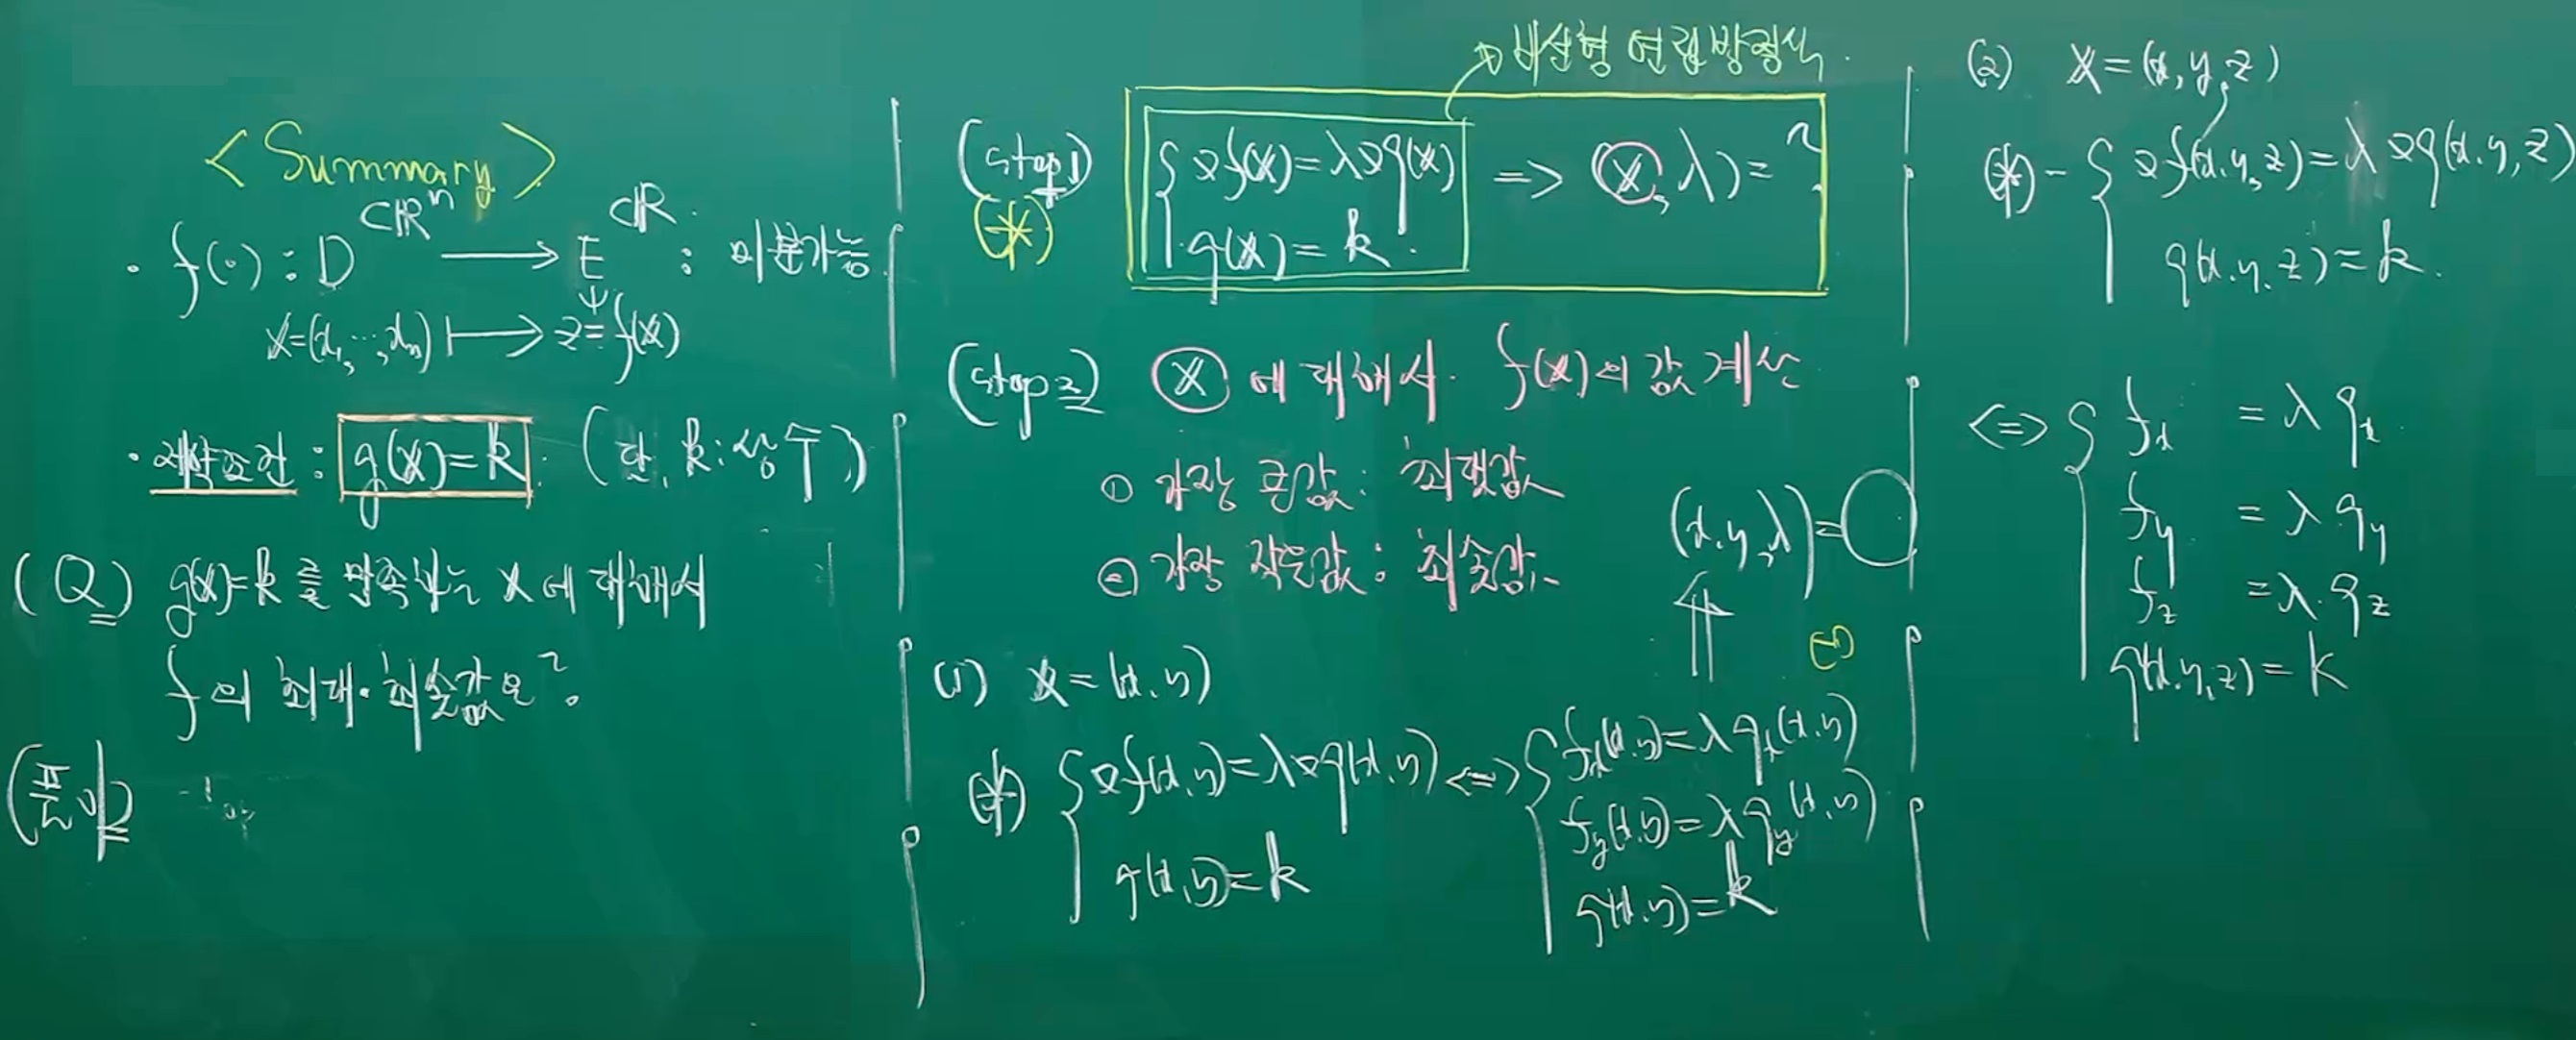 <Summary>
· f(·) : D ⊂ ℝⁿ ⟶ E ⊂ ℝ : 미분가능
𝕏=(x₁, ···, xₙ) ⟼ z = f(𝕏)
· 제약조건 : g(𝕏) = k. (단, k : 상수)
(Q) g(𝕏)=k 를 만족하는 𝕏에 대해서
f의 최대·최솟값은?
(풀이)
(step1) (*) { ∇f(𝕏) = λ∇g(𝕏)
g(𝕏) = k.
⇒ (𝕏, λ) = ?
→ 비선형 연립방정식.
(step2) 𝕏 에 대해서. f(𝕏)의 값 계산
① 가장 큰값 : 최댓값
② 가장 작은값 : 최솟값
(1) 𝕏 = (x, y)
(*) { ∇f(x, y) = λ∇g(x, y)
g(x, y) = k
⟺ { f_x(x, y) = λ g_x(x, y)
f_y(x, y) = λ g_y(x, y)
g(x, y) = k
⇑
(x, y, λ) = ○
(2) 𝕏 = (x, y, z)
(*) - { ∇f(x, y, z) = λ∇g(x, y, z)
g(x, y, z) = k.
⟺ { f_x = λ g_x
f_y = λ g_y
f_z = λ · g_z
g(x, y, z) = k